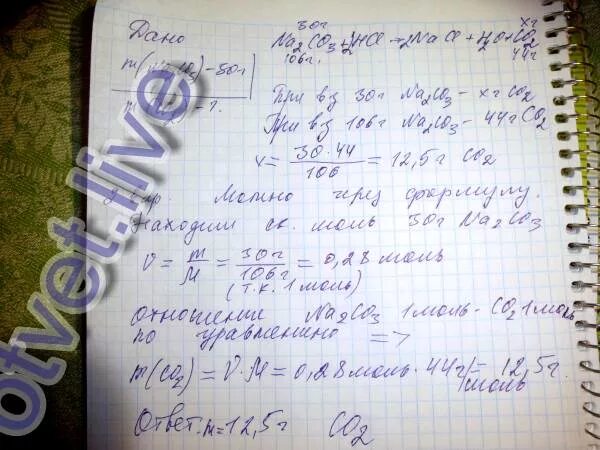 Дано
30г хг
Na2CO3 + 2HCl → 2NaCl + H2O + CO2
106г. 44г
m( CO3) - 30г
- ?
При вз 30г Na2CO3 - хг CO2
При вз 106г Na2CO3 - 44г CO2
x = 30·44 / 106 = 12,5г CO2
Можно через формулу.
Находим ск. моль 30г Na2CO3
ν = m/M = 30г/106г = 0,28 моль
(т.к. 1 моль)
отношение Na2CO3 1моль - CO2 1моль
по уравнению =>
m(CO2) = ν·M = 0,28 моль · 44г/моль = 12,5г.
Ответ. m = 12,5г CO2
otvet.live